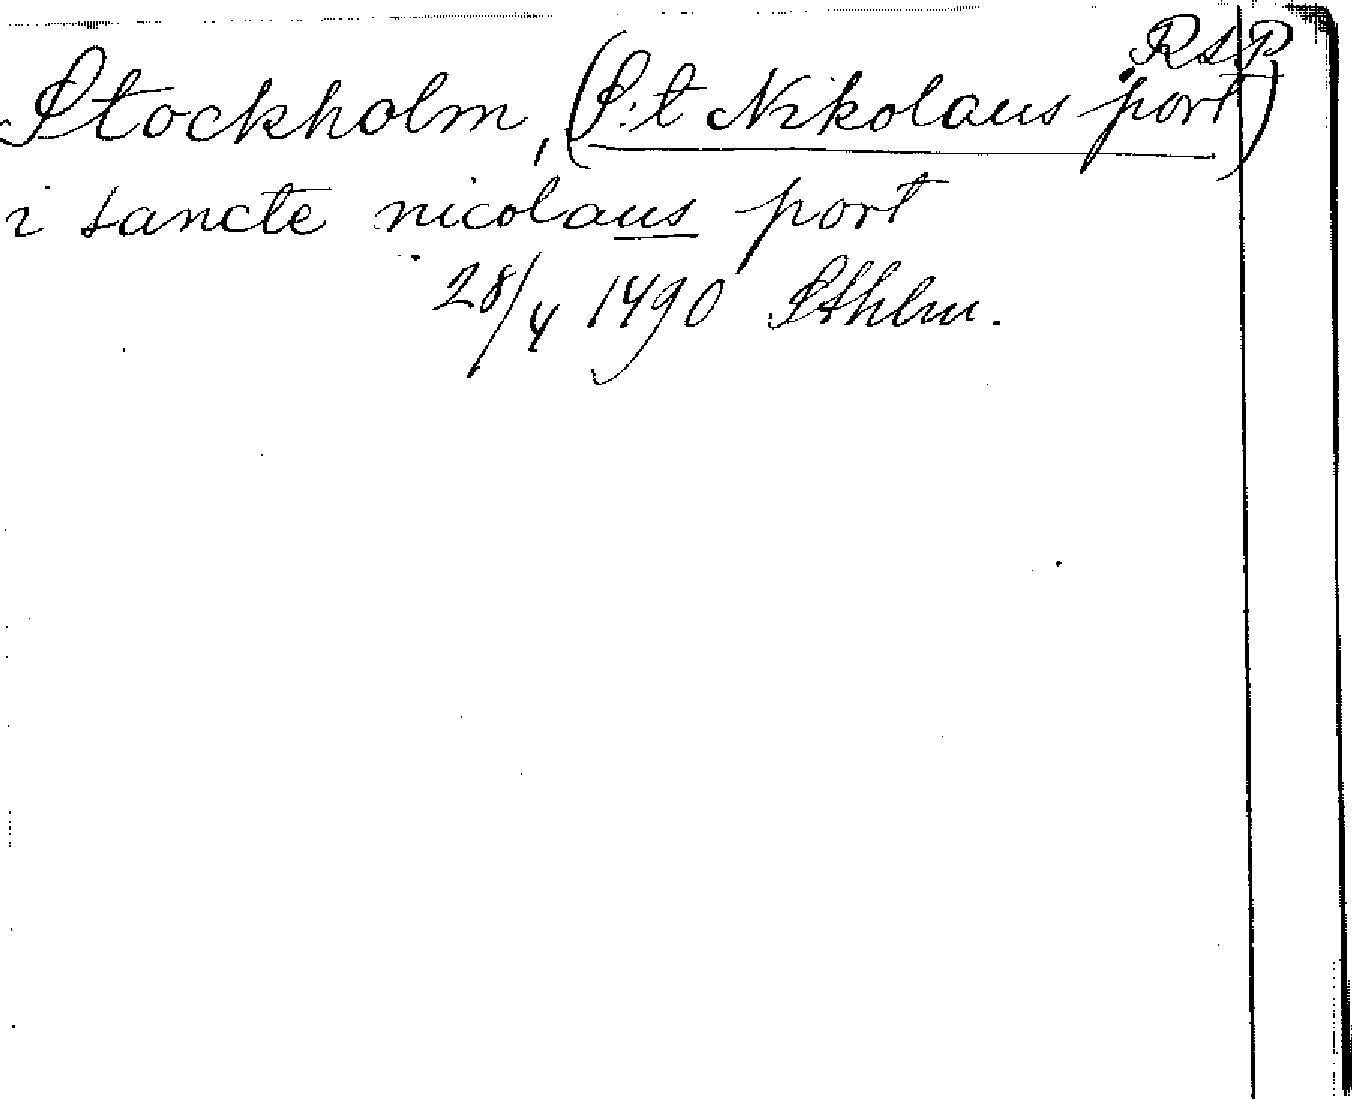 RAP
Stockholm, (S:t Nikolaus port)
i sancte nicolaus port
28/4 1490 Sthlm.